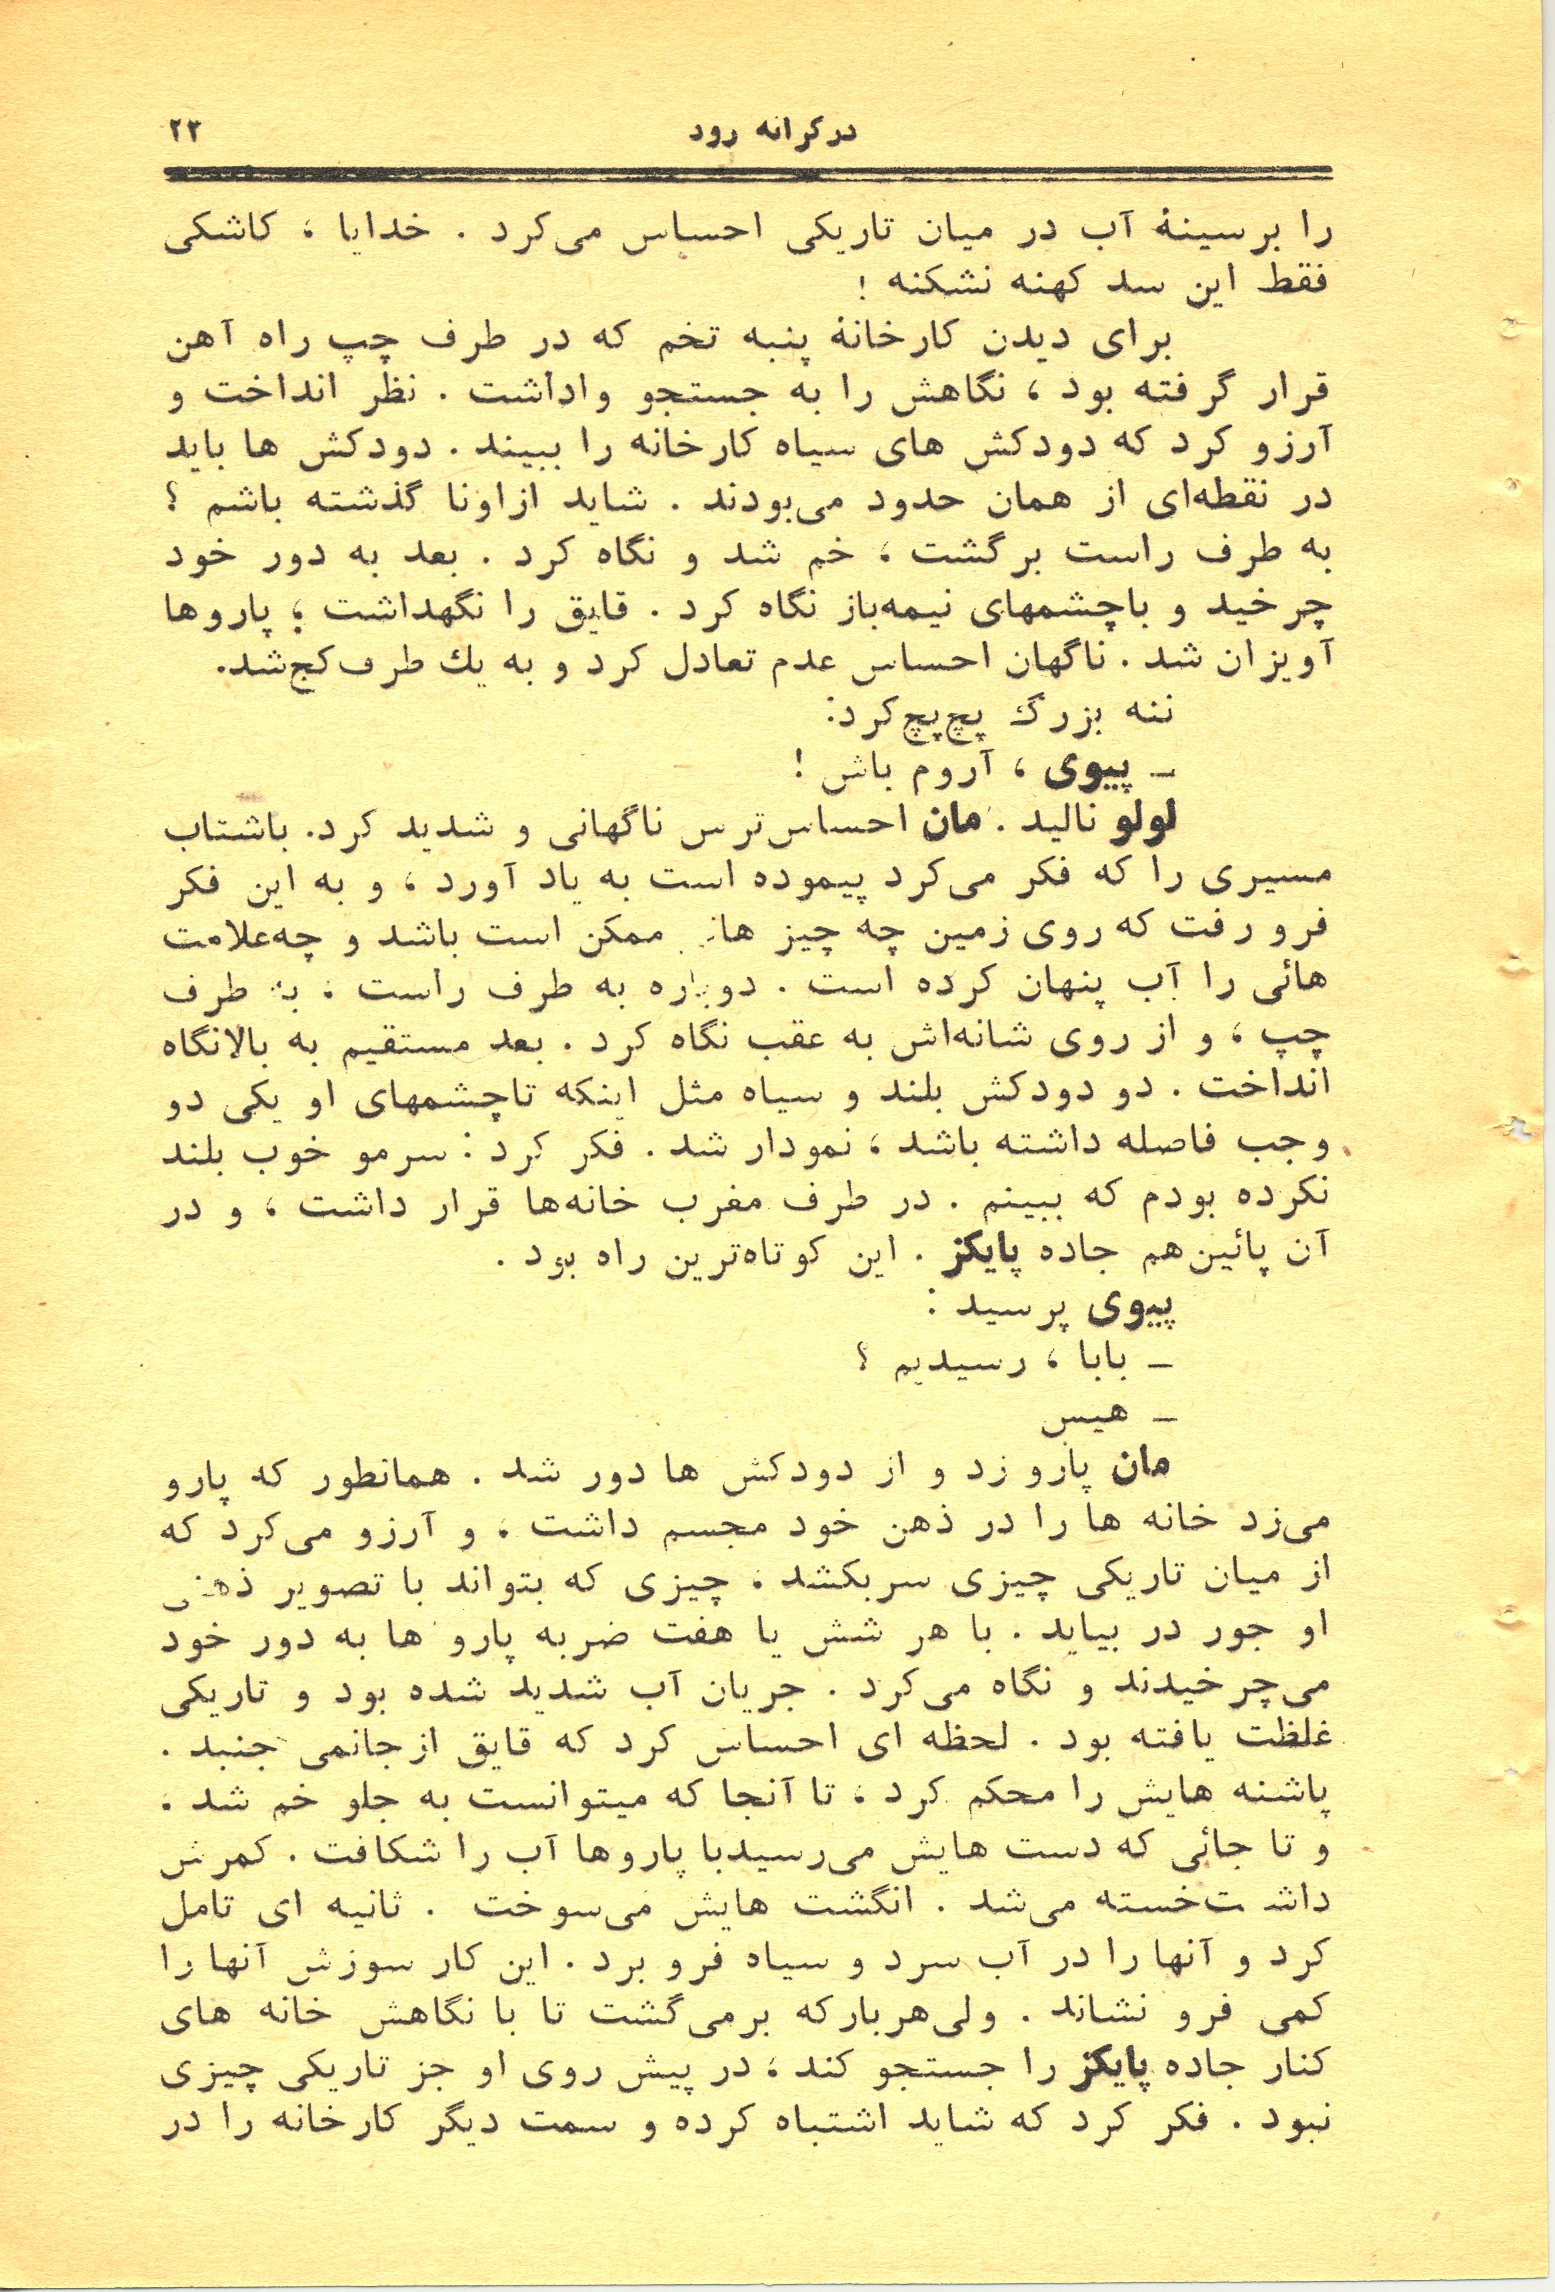 در کرانه رود ۲۳
را بر سینهٔ آب در میان تاریکی احساس می‌کرد . خدایا ، کاشکی
فقط این سد کهنه نشکنه !
برای دیدن کارخانهٔ پنبه تخم که در طرف چپ راه آهن
قرار گرفته بود ، نگاهش را به جستجو واداشت . نظر انداخت و
آرزو کرد که دودکش های سیاه کارخانه را ببیند . دودکش ها باید
در نقطه‌ای از همان حدود می‌بودند . شاید از اونا گذشته باشم ؟
به طرف راست برگشت ، خم شد و نگاه کرد . بعد به دور خود
چرخید و باچشمهای نیمه‌باز نگاه کرد . قایق را نگهداشت ؛ پاروها
آویزان شد . ناگهان احساس عدم تعادل کرد و به یك طرف کج شد.
ننه بزرگ پچ‌پچ کرد:
ـ پیوی ، آروم باش !
لولو نالید . مان احساس ترس ناگهانی و شدید کرد. باشتاب
مسیری را که فکر می‌کرد پیموده است به یاد آورد ، و به این فکر
فرو رفت که روی زمین چه چیز ممکن است باشد و چه‌علامت
هائی را آب پنهان کرده است . دوباره به طرف راست ، به طرف
چپ ، و از روی شانه‌اش به عقب نگاه کرد . بعد مستقیم به بالا نگاه
انداخت . دو دودکش بلند و سیاه مثل اینکه تاچشمهای او یکی دو
وجب فاصله داشته باشد ، نمودار شد . فکر کرد : سرمو خوب بلند
نکرده بودم که ببینم . در طرف مغرب خانه‌ها قرار داشت ، و در
آن پائین هم جاده پایکز . این کوتاه‌ترین راه بود .
پیوی پرسید :
ـ بابا ، رسیدیم ؟
ـ هیس
مان پارو زد و از دودکش ها دور شد . همانطور که پارو
می‌زد خانه ها را در ذهن خود مجسم داشت ، و آرزو می‌کرد که
از میان تاریکی چیزی سربکشد ، چیزی که بتواند با تصویر ذهنی
او جور در بیاید . با هر شش یا هفت ضربه پارو ها به دور خود
می‌چرخیدند و نگاه می‌کرد . جریان آب شدید شده بود و تاریکی
غلظت یافته بود . لحظه ای احساس کرد که قایق از جانمی جنبد .
پاشنه هایش را محکم کرد ، تا آنجا که میتوانست به جلو خم شد ،
و تا جائی که دست هایش می‌رسیدبا پاروها آب را شکافت . کمرش
داشت‌خسته می‌شد . انگشت هایش می‌سوخت . ثانیه ای تامل
کرد و آنها را در آب سرد و سیاه فرو برد . این کار سوزش آنها را
کمی فرو نشاند . ولی هربار که برمی‌گشت تا با نگاهش خانه های
کنار جاده پایکز را جستجو کند ، در پیش روی او جز تاریکی چیزی
نبود . فکر کرد که شاید اشتباه کرده و سمت دیگر کارخانه را در